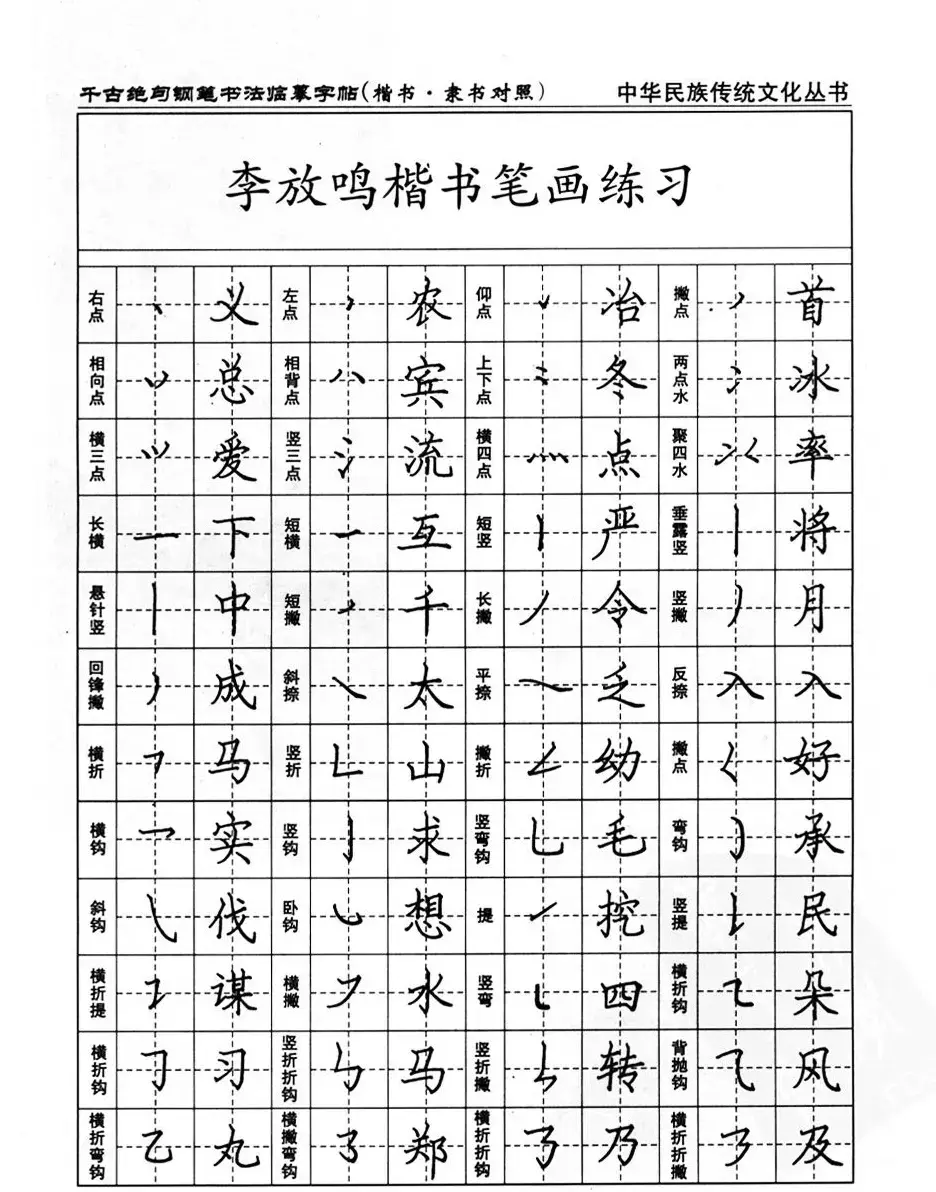 千古绝句钢笔书法临摹字帖(楷书·隶书对照) 中华民族传统文化丛书
李放鸣楷书笔画练习
右点 丶 义 左点 农 仰点 冶 撇点 首
相向点 总 相背点 宾 上下点 冬 两点水 冫 冰
横三点 爱 竖三点 氵 流 横四点 灬 点 聚四水 率
长横 一 下 短横 一 互 短竖 丨 严 垂露竖 丨 将
悬针竖 丨 中 短撇 丿 千 长撇 丿 令 竖撇 丿 月
回锋撇 丿 成 斜捺 ㇏ 太 平捺 ㇏ 乏 反捺 入 入
横折 ㇕ 马 竖折 ㇗ 山 撇折 ㇜ 幼 撇点 ㇛ 好
横钩 ㇖ 实 竖钩 亅 求 竖弯钩 乚 毛 弯钩 ㇁ 承
斜钩 ㇂ 伐 卧钩 ㇃ 想 提 ㇀ 挖 竖提 ㇙ 民
横折提 ㇊ 谋 横撇 ㇇ 水 竖弯 ㇄ 四 横折钩 ㇍ 朵
横折钩 ㇆ 习 竖折折钩 ㇉ 马 竖折撇 ㇞ 转 背抛钩 ⺄ 风
横折弯钩 乙 丸 横撇弯钩 ㇌ 郑 横折折钩 ㇡ 乃 横折折撇 ㇋ 及